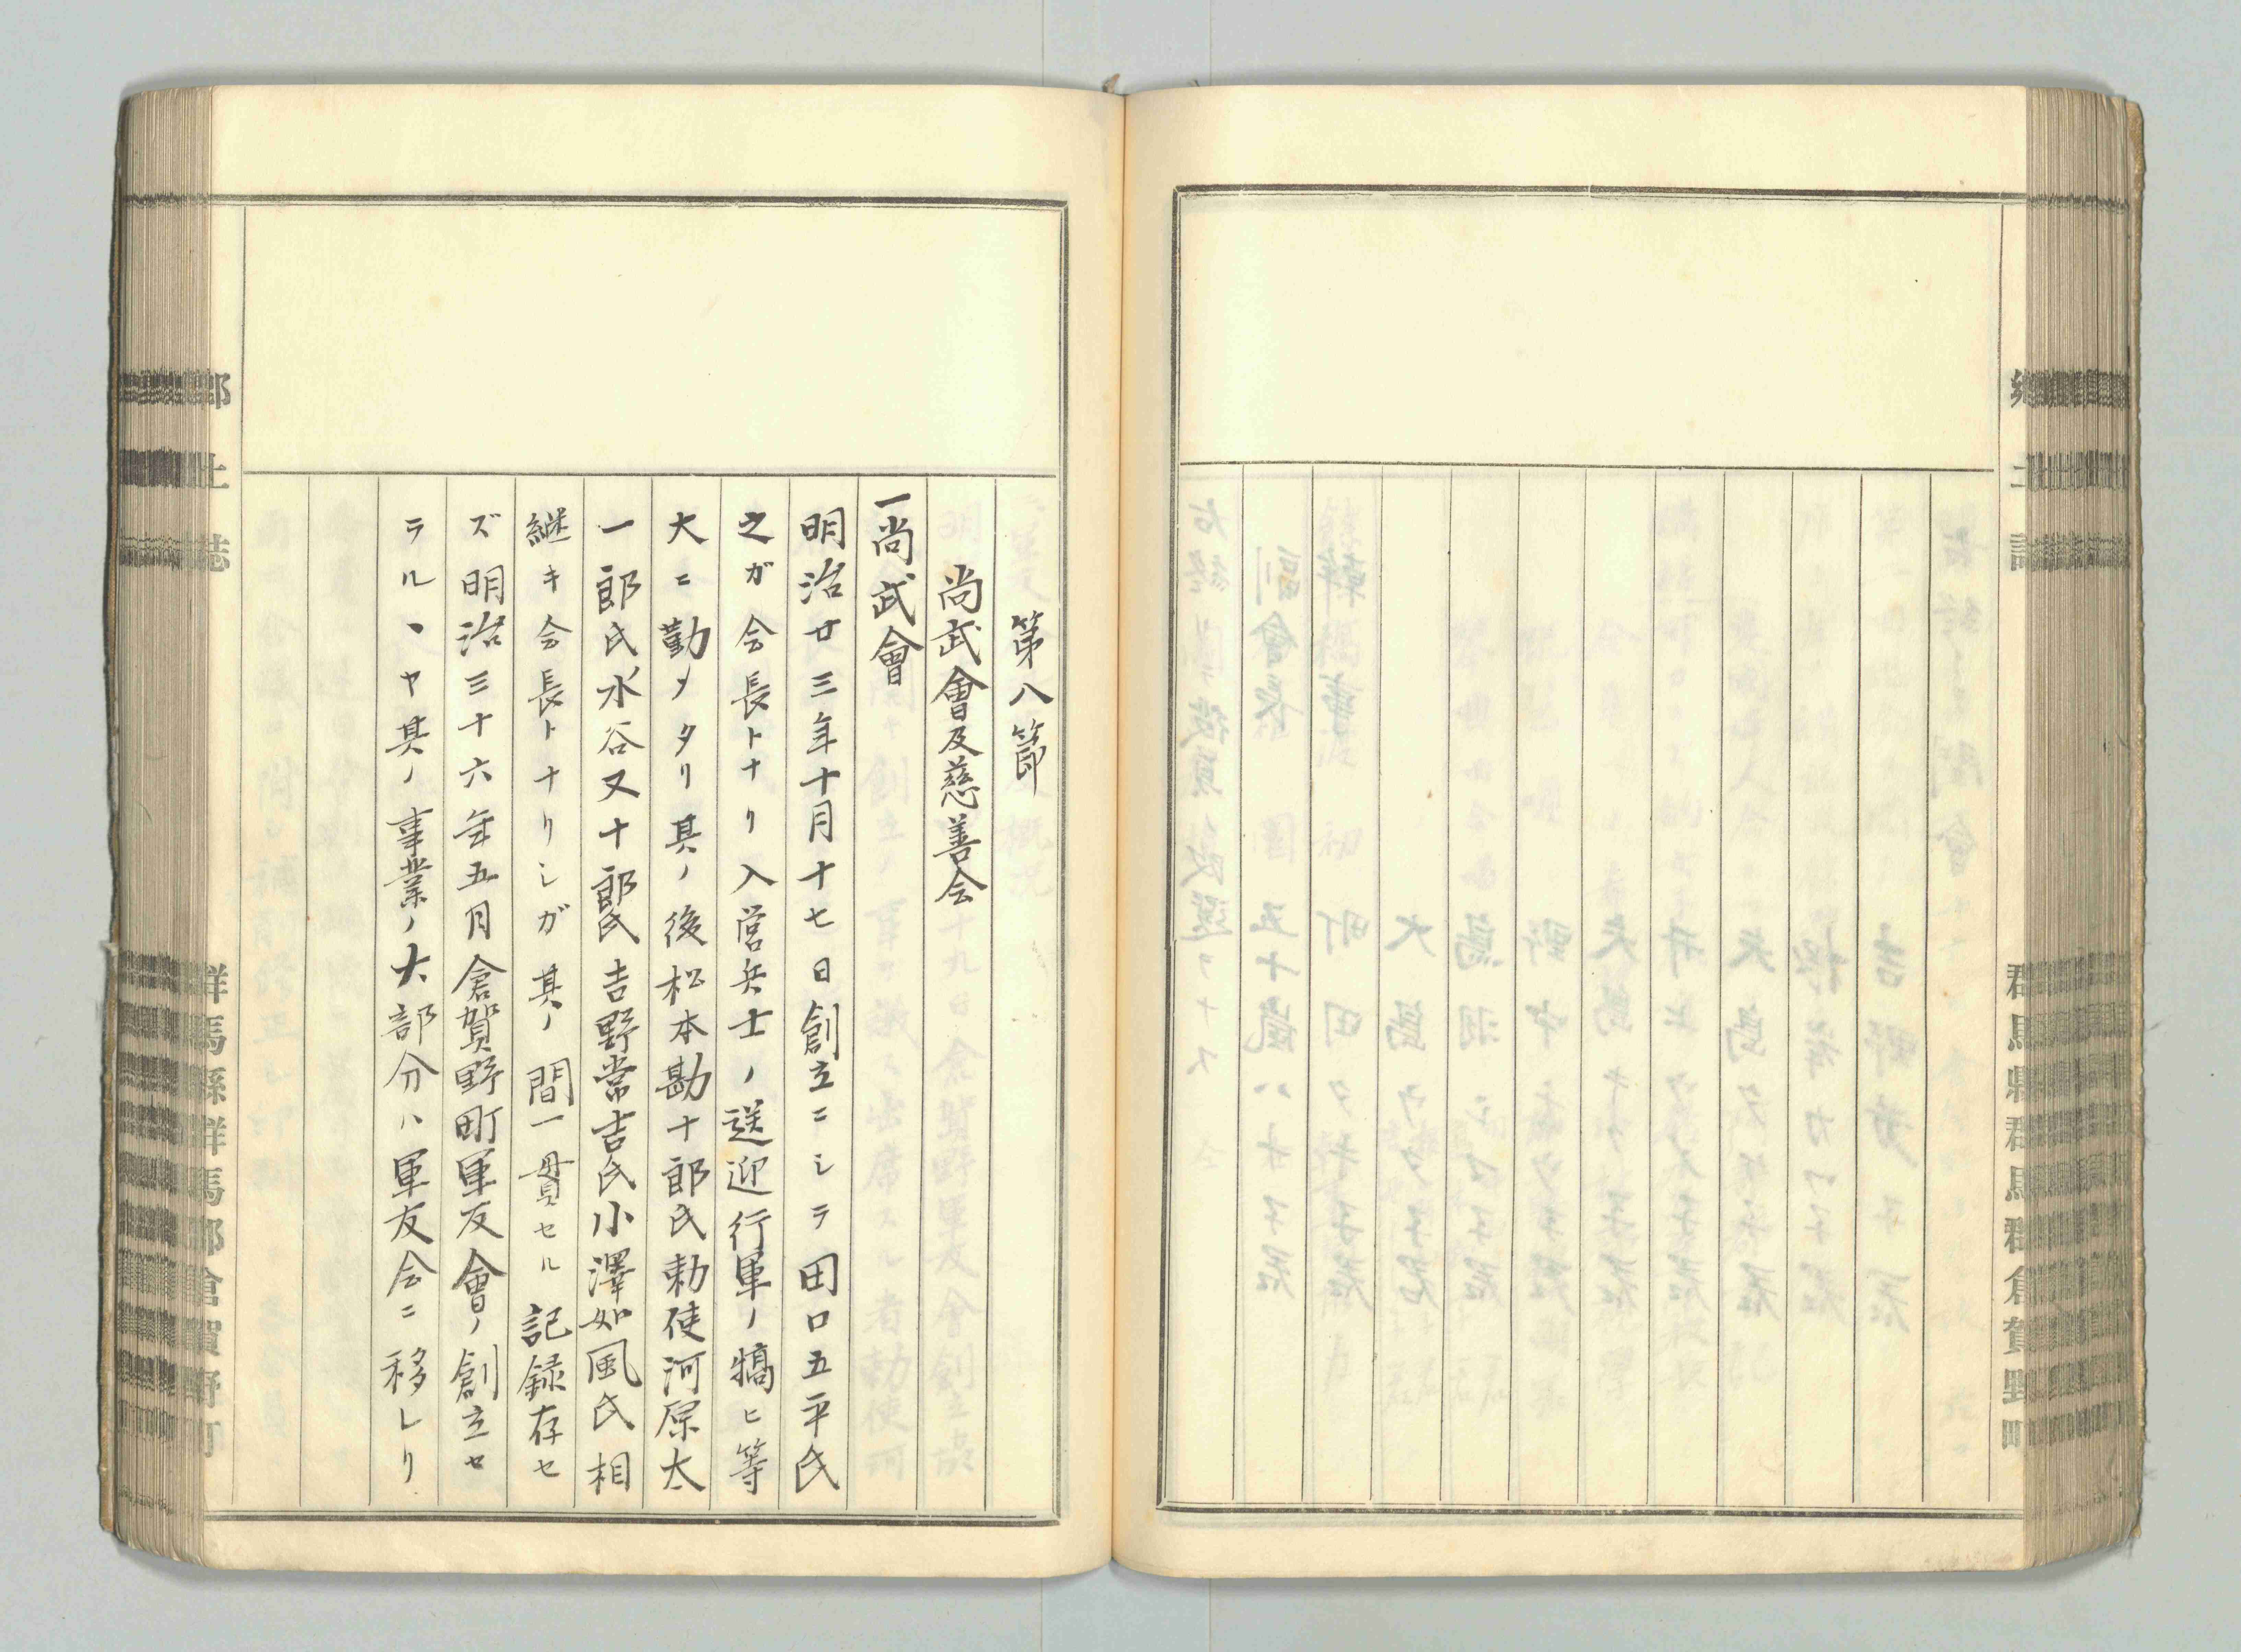 第八節
尚武會及慈善会
一尚武會
明治廿三年十月十七日創立ニシテ田口五平氏
之ガ会長トナリ入営兵士ノ送迎行軍ノ犒ヒ等
大ニ勤メタリ其ノ後松本勘十郎氏勅使河原太
一郎氏水谷又十郎氏吉野常吉氏小澤如風氏相
継キ会長トナリシガ其ノ間一貫セル記録存セ
ズ明治三十六年五月倉賀野町軍友會ノ創立セ
ラルヽヤ其ノ事業ノ大部分ハ軍友会ニ移レリ
郷土誌
群馬縣群馬郡倉賀野町